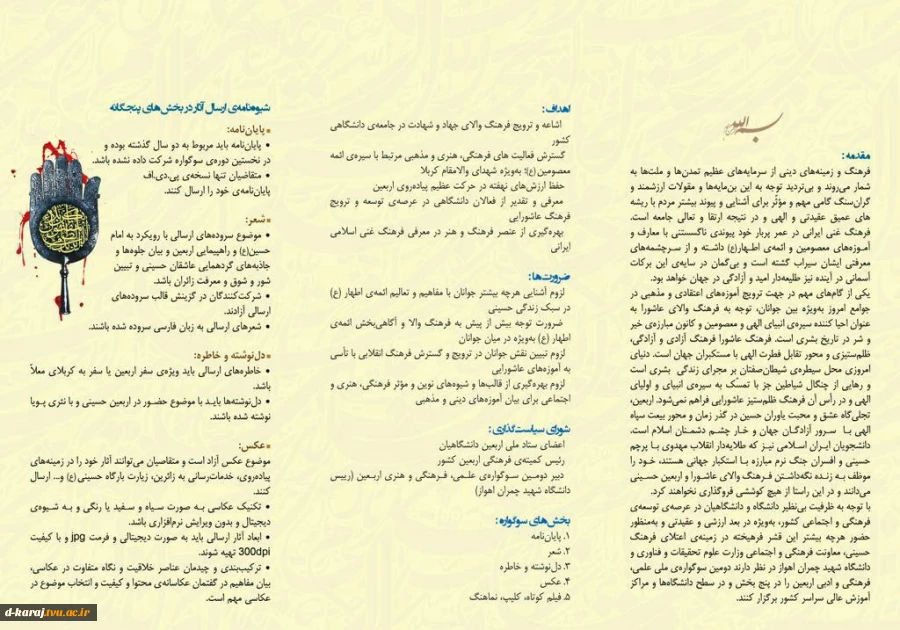 بسم الله
مقدمه:
فرهنگ و زمینه‌های دینی از سرمایه‌های عظیم تمدن‌ها و ملت‌ها به
شمار می‌روند و بی‌تردید توجه به این بن‌مایه‌ها و مقولات ارزشمند و
گران‌سنگ گامی مهم و مؤثر برای آشنایی و پیوند بیشتر مردم با ریشه
های عمیق عقیدتی و الهی و در نتیجه ارتقا و تعالی جامعه است.
فرهنگ غنی ایرانی در عمر پربار خود پیوندی ناگسستنی با معارف و
آموزه‌های معصومین و ائمه‌ی اطهار(ع) داشته و از سرچشمه‌های
معرفتی ایشان سیراب گشته است و بی‌گمان در سایه‌ی این برکات
آسمانی در آینده نیز طلیعه‌دار امید و آزادگی در جهان خواهد بود.
یکی از گام‌های مهم در جهت ترویج آموزه‌های اعتقادی و مذهبی در
جوامع امروز به‌ویژه بین جوانان، توجه به فرهنگ والای عاشورا به
عنوان احیا کننده سیره‌ی انبیای الهی و معصومین و کانون مبارزه‌ی خیر
و شر در تاریخ بشری است. فرهنگ عاشورا فرهنگ آزادی و آزادگی،
ظلم‌ستیزی و محور تقابل فطرت الهی با مستکبران جهان است. دنیای
امروزی محل سیطره‌ی شیطان‌صفتان بر مجرای زندگی بشری است
و رهایی از چنگال شیاطین جز با تمسک به سیره‌ی انبیای و اولیای
الهی و در رأس آن فرهنگ ظلم‌ستیز عاشورایی فراهم نمی‌شود. اربعین،
تجلی‌گاه عشق و محبت یاوران حسین در گذر زمان و محور بیعت سپاه
الهی با سرور آزادگان جهان و خار چشم دشمنان اسلام است.
دانشجویان ایران اسلامی نیز که طلایه‌دار انقلاب مهدوی با پرچم
حسینی و افسران جنگ نرم مبارزه با استکبار جهانی هستند، خود را
موظف به زنده نگه‌داشتن فرهنگ والای عاشورا و اربعین حسینی
می‌دانند و در این راستا از هیچ کوششی فروگذاری نخواهند کرد.
با توجه به ظرفیت بی‌نظیر دانشگاه و دانشگاهیان در عرصه‌ی توسعه‌ی
فرهنگی و اجتماعی کشور، به‌ویژه در بعد ارزشی و عقیدتی و به‌منظور
حضور هرچه بیشتر این قشر فرهیخته در زمینه‌ی اعتلای فرهنگ
حسینی، معاونت فرهنگی و اجتماعی وزارت علوم تحقیقات و فناوری و
دانشگاه شهید چمران اهواز در نظر دارند دومین سوگواره‌ی ملی علمی،
فرهنگی و ادبی اربعین را در پنج بخش و در سطح دانشگاه‌ها و مراکز
آموزش عالی سراسر کشور برگزار کنند.
اهداف:
اشاعه و ترویج فرهنگ والای جهاد و شهادت در جامعه‌ی دانشگاهی
کشور
گسترش فعالیت های فرهنگی، هنری و مذهبی مرتبط با سیره‌ی ائمه
معصومین (ع)؛ به‌ویژه شهدای والامقام کربلا
حفظ ارزش‌های نهفته در حرکت عظیم پیاده‌روی اربعین
معرفی و تقدیر از فعالان دانشگاهی در عرصه‌ی توسعه و ترویج
فرهنگ عاشورایی
بهره‌گیری از عنصر فرهنگ و هنر در معرفی فرهنگ غنی اسلامی
ایرانی
ضرورت‌ها:
لزوم آشنایی هرچه بیشتر جوانان با مفاهیم و تعالیم ائمه‌ی اطهار (ع)
در سبک زندگی حسینی
ضرورت توجه بیش از پیش به فرهنگ والا و آگاهی‌بخش ائمه‌ی
اطهار (ع) به‌ویژه در میان جوانان
لزوم تبیین نقش جوانان در ترویج و گسترش فرهنگ انقلابی با تأسی
به آموزه‌های عاشورایی
لزوم بهره‌گیری از قالب‌ها و شیوه‌های نوین و مؤثر فرهنگی، هنری و
اجتماعی برای بیان آموزه‌های دینی و مذهبی
شورای سیاست‌گذاری:
اعضای ستاد ملی اربعین دانشگاهیان
رئیس کمیته‌ی فرهنگی اربعین کشور
دبیر دومین سوگواره‌ی علمی، فرهنگی و هنری اربعین (رییس
دانشگاه شهید چمران اهواز)
بخش‌های سوگواره:
۱. پایان‌نامه
۲. شعر
۳. دل‌نوشته و خاطره
۴. عکس
۵. فیلم کوتاه، کلیپ، نماهنگ
شیوه‌نامه‌ی ارسال آثار در بخش‌های پنجگانه
▪ پایان‌نامه:
• پایان‌نامه باید مربوط به دو سال گذشته بوده و
در نخستین دوره‌ی سوگواره شرکت داده نشده باشد.
• متقاضیان تنها نسخه‌ی پی.دی.اف
پایان‌نامه‌ی خود را ارسال کنند.
▪ شعر:
• موضوع سروده‌های ارسالی با رویکرد به امام
حسین(ع) و راهپیمایی اربعین و بیان جلوه‌ها و
جاذبه‌های گردهمایی عاشقان حسینی و تبیین
شور و شوق و معرفت زائران باشد.
• شرکت‌کنندگان در گزینش قالب سروده‌های
ارسالی آزادند.
• شعرهای ارسالی به زبان فارسی سروده شده باشند.
▪ دل‌نوشته و خاطره:
• خاطره‌های ارسالی باید ویژه‌ی سفر اربعین یا سفر به کربلای معلا
باشد.
• دل‌نوشته‌ها باید با موضوع حضور در اربعین حسینی و با نثری پویا
نوشته شده باشند.
▪ عکس:
موضوع عکس آزاد است و متقاضیان می‌توانند آثار خود را در زمینه‌های
پیاده‌روی، خدمات‌رسانی به زائرین، زیارت بارگاه حسینی (ع) و... ارسال
کنند.
• تکنیک عکاسی به صورت سیاه و سفید یا رنگی و به شیوه‌ی
دیجیتال و بدون ویرایش نرم‌افزاری باشد.
• ابعاد آثار ارسالی باید به صورت دیجیتالی و فرمت jpg و با کیفیت
300dpi تهیه شوند.
• ترکیب‌بندی و چیدمان عناصر خلاقیت و نگاه متفاوت در عکاسی،
بیان مفاهیم در گفتمان عکاسانه‌ی محتوا و کیفیت و انتخاب موضوع در
عکاسی مهم است.
d-karaj.tvu.ac.ir